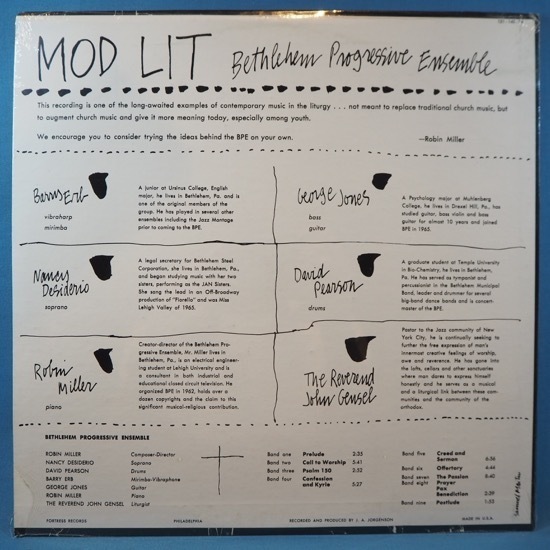 MOD LIT Bethlehem Progressive Ensemble
This recording is one of the long-awaited examples of contemporary music in the liturgy . . . not meant to replace traditional church music, but
to augment church music and give it more meaning today, especially among youth.
We encourage you to consider trying the ideas behind the BPE on your own.
—Robin Miller
Barry Erb
vibraharp
mirimba
A junior at Ursinus College, English
major, he lives in Bethlehem, Pa. and is
one of the original members of the
group. He has played in several other
ensembles including the Jazz Montage
prior to coming to the BPE.
George Jones
bass
guitar
A Psychology major at Muhlenberg
College, he lives in Drexel Hill, Pa., has
studied guitar, bass violin and bass
guitar for almost 10 years and joined
BPE in 1965.
Nancy
Desiderio
soprano
A legal secretary for Bethlehem Steel
Corporation, she lives in Bethlehem, Pa.,
and began studying music with her two
sisters, performing as the JAN Sisters.
She sang the lead in an Off-Broadway
production of "Fiorello" and was Miss
Lehigh Valley of 1965.
David
Pearson
drums
A graduate student at Temple University
in Bio-Chemistry, he lives in Bethlehem,
Pa. He has served as tympanist and
percussionist in the Bethlehem Municipal
Band, leader and drummer for several
big-band dance bands and is concert-
master of the BPE.
Robin
Miller
piano
Creator-director of the Bethlehem Pro-
gressive Ensemble, Mr. Miller lives in
Bethlehem, Pa., is an electrical engineer-
ing student at Lehigh University and is
a consultant in both industrial and
educational closed circuit television. He
organized BPE in 1962, holds over a
dozen copyrights and the claim to this
significant musical-religious contribution.
The Reverend
John Gensel
Pastor to the Jazz community of New
York City, he is continually seeking to
further the free expression of man's
innermost creative feelings of worship,
awe and reverence. He has gone into
the lofts, cellars and other sanctuaries
where man dares to express himself
honestly and he serves as a musical
and a liturgical link between these com-
munities and the community of the
orthodox.
BETHLEHEM PROGRESSIVE ENSEMBLE
ROBIN MILLER Composer-Director
NANCY DESIDERIO Soprano
DAVID PEARSON Drums
BARRY ERB Mirimba-Vibraphone
GEORGE JONES Guitar
ROBIN MILLER Piano
THE REVEREND JOHN GENSEL Liturgist
Band one Prelude 2:35
Band two Call to Worship 5:41
Band three Psalm 150 2:52
Band four Confession
and Kyrie 5:27
Band five Creed and
Sermon 6:56
Band six Offertory 4:46
Band seven The Passion 8:40
Band eight Prayer
Pax
Benediction 2:59
Band nine Postlude 1:55
FORTRESS RECORDS PHILADELPHIA RECORDED AND PRODUCED BY J. A. JURGENSON MADE IN U.S.A.